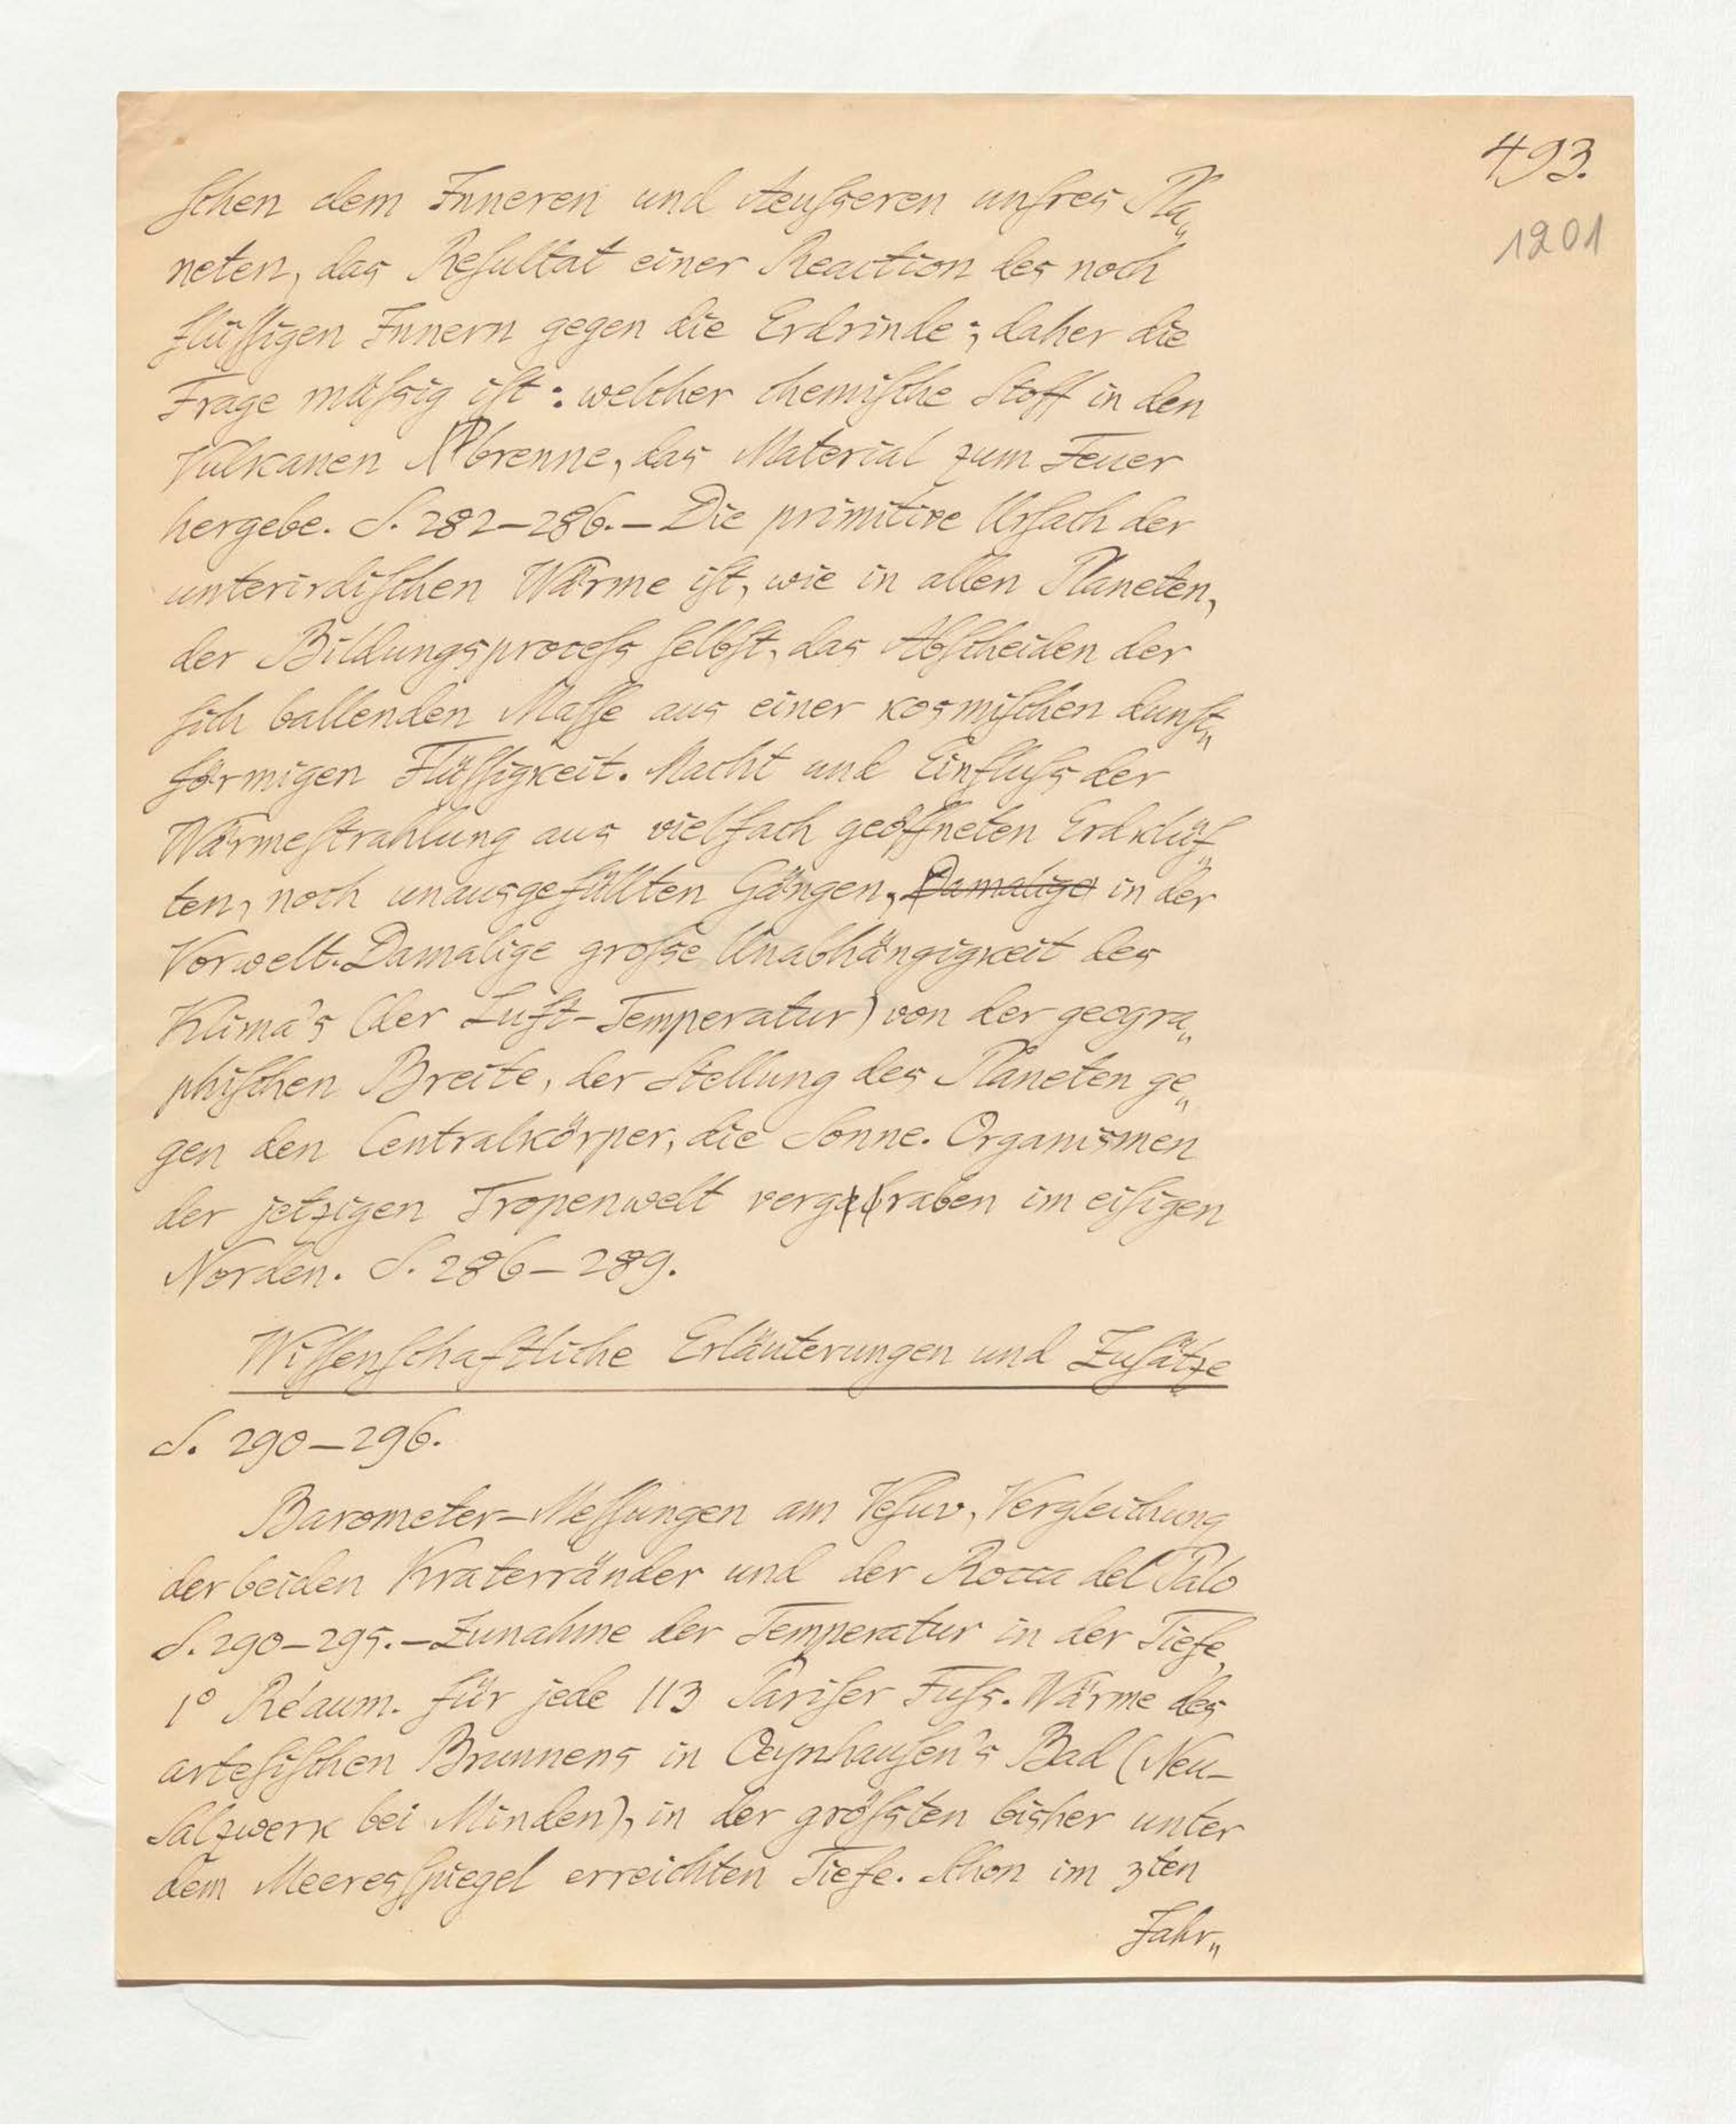 493.
1201
ſchen dem Inneren und Aeuſseren unſres Pla„
neten, das Reſultat einer Reaction des noch
flüſſigen Innern gegen die Erdrinde; daher die
Frage müſsig iſt: welcher chemiſche Stoff in den
Vulkanen brenne, das Material zum Feuer
hergebe. S. 282–286. – Die primitive Urſach der
unterirdiſchen Wärme iſt, wie in allen Planeten,
der Bildungsproceſs ſelbſt, das Abſcheiden der
ſich ballenden Maſſe aus einer kosmiſchen dunſt„
förmigen Flüſſigkeit. Macht und Einfluſs der
Wärmeſtrahlung aus vielfach geöffneten Erdklüf„
ten, noch unausgefüllten Gängen, Damalige in der
Vorwelt. Damalige groſse Unabhängigkeit des
Klima's (der Luft-Temperatur) von der geogra„
phiſchen Breite, der Stellung des Planeten ge„
gen den Centralkörper, die Sonne. Organismen
der jetzigen Tropenwelt vergraben im eiſigen
Norden. S. 286–289.
Wiſſenſchaftliche Erläuterungen und Zuſätze
S. 290–296.
Barometer-Meſſungen am Veſuv, Vergleichung
der beiden Kraterränder und der Rocca del Palo
S. 290–295. – Zunahme der Temperatur in der Tiefe,
1° Réaum. für jede 113 Pariſer Fuſs. Wärme des
arteſiſchen Brunnens in Oeynhauſen's Bad (Neu-
Salzwerk bei Minden), in der gröſsten bisher unter
dem Meeresſpiegel erreichten Tiefe. Schon im 3ten
Jahr„